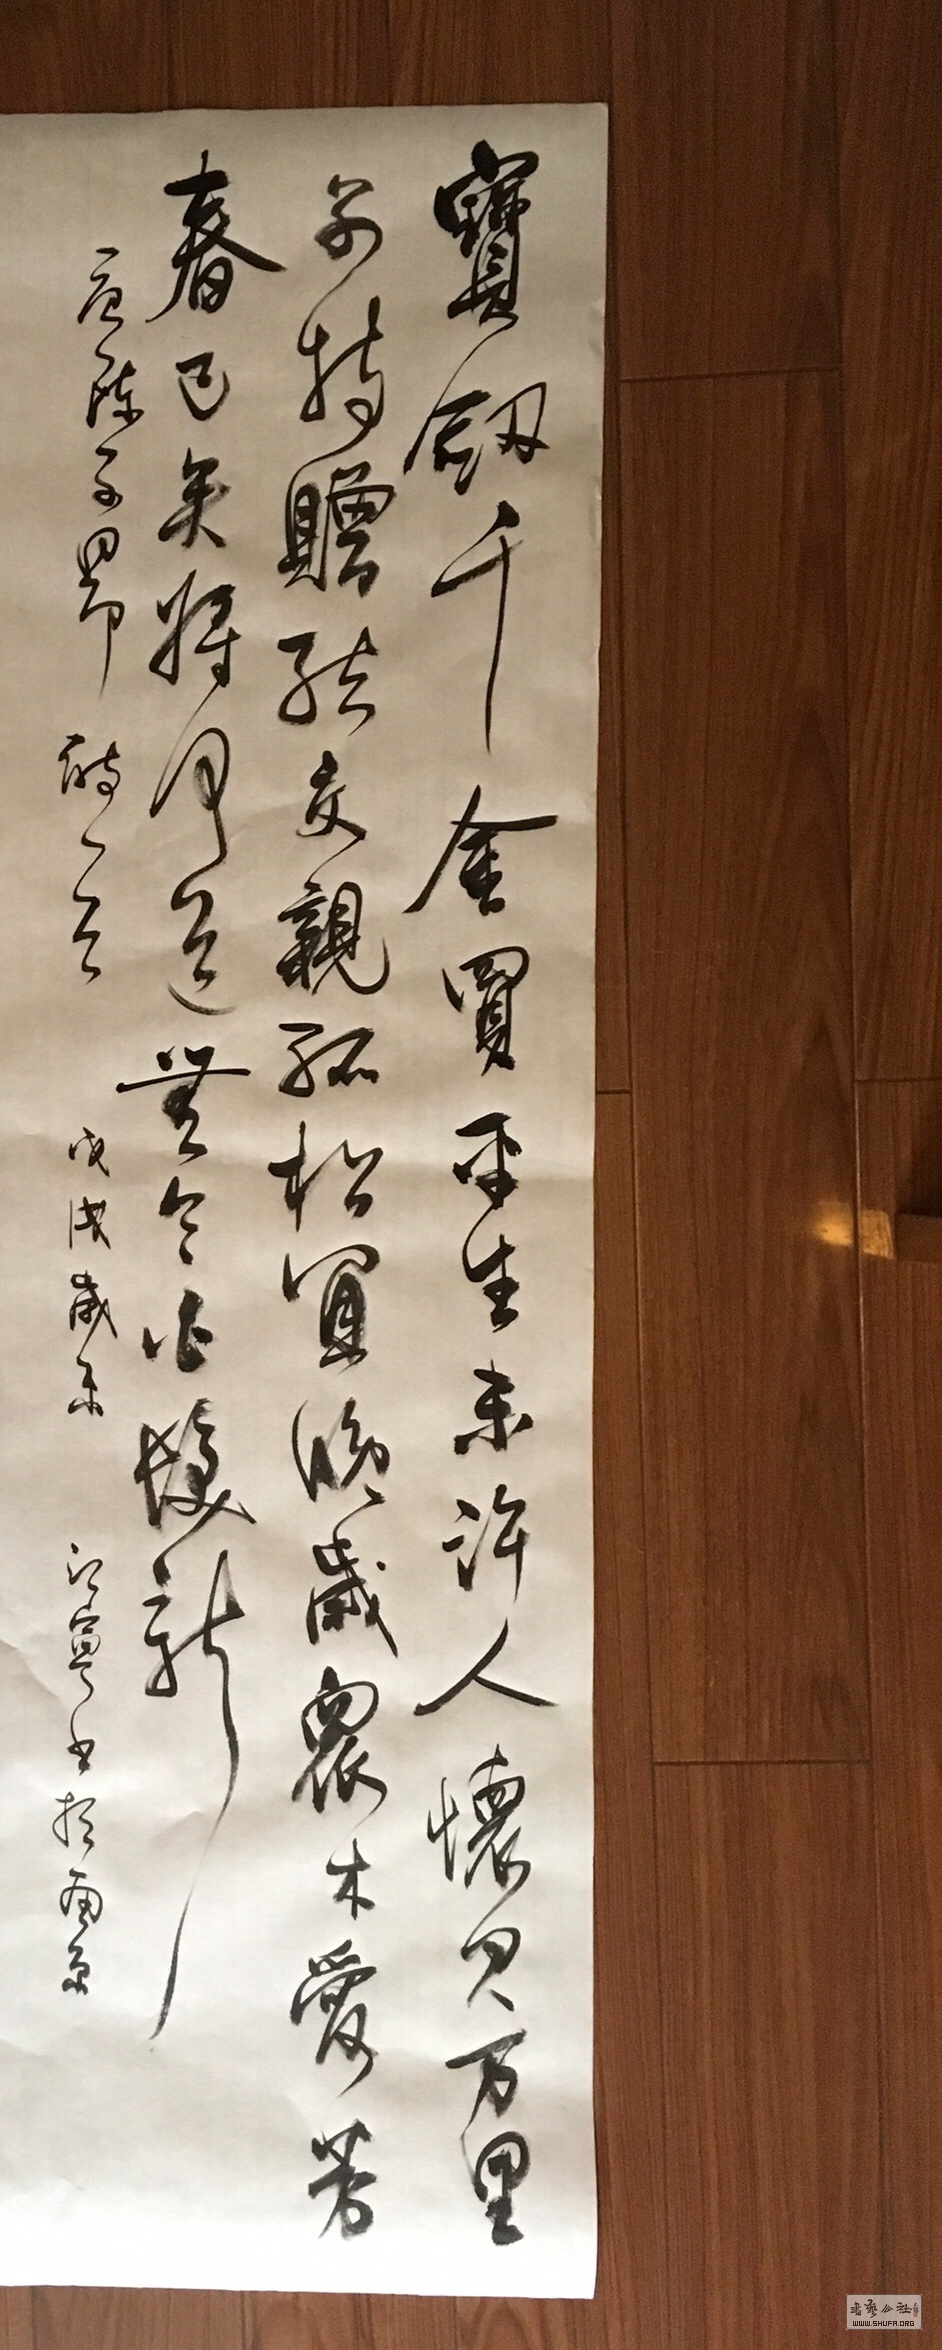 寶劔千金買平生未許人懷君万里
別持贈結交親孤松宜晚歲衆木愛芳
春已矣將何道無令白髮新
唐陳子昂詩一首 戊戌歲末 江寧书於南京
書藝公社
WWW.SHUFA.ORG